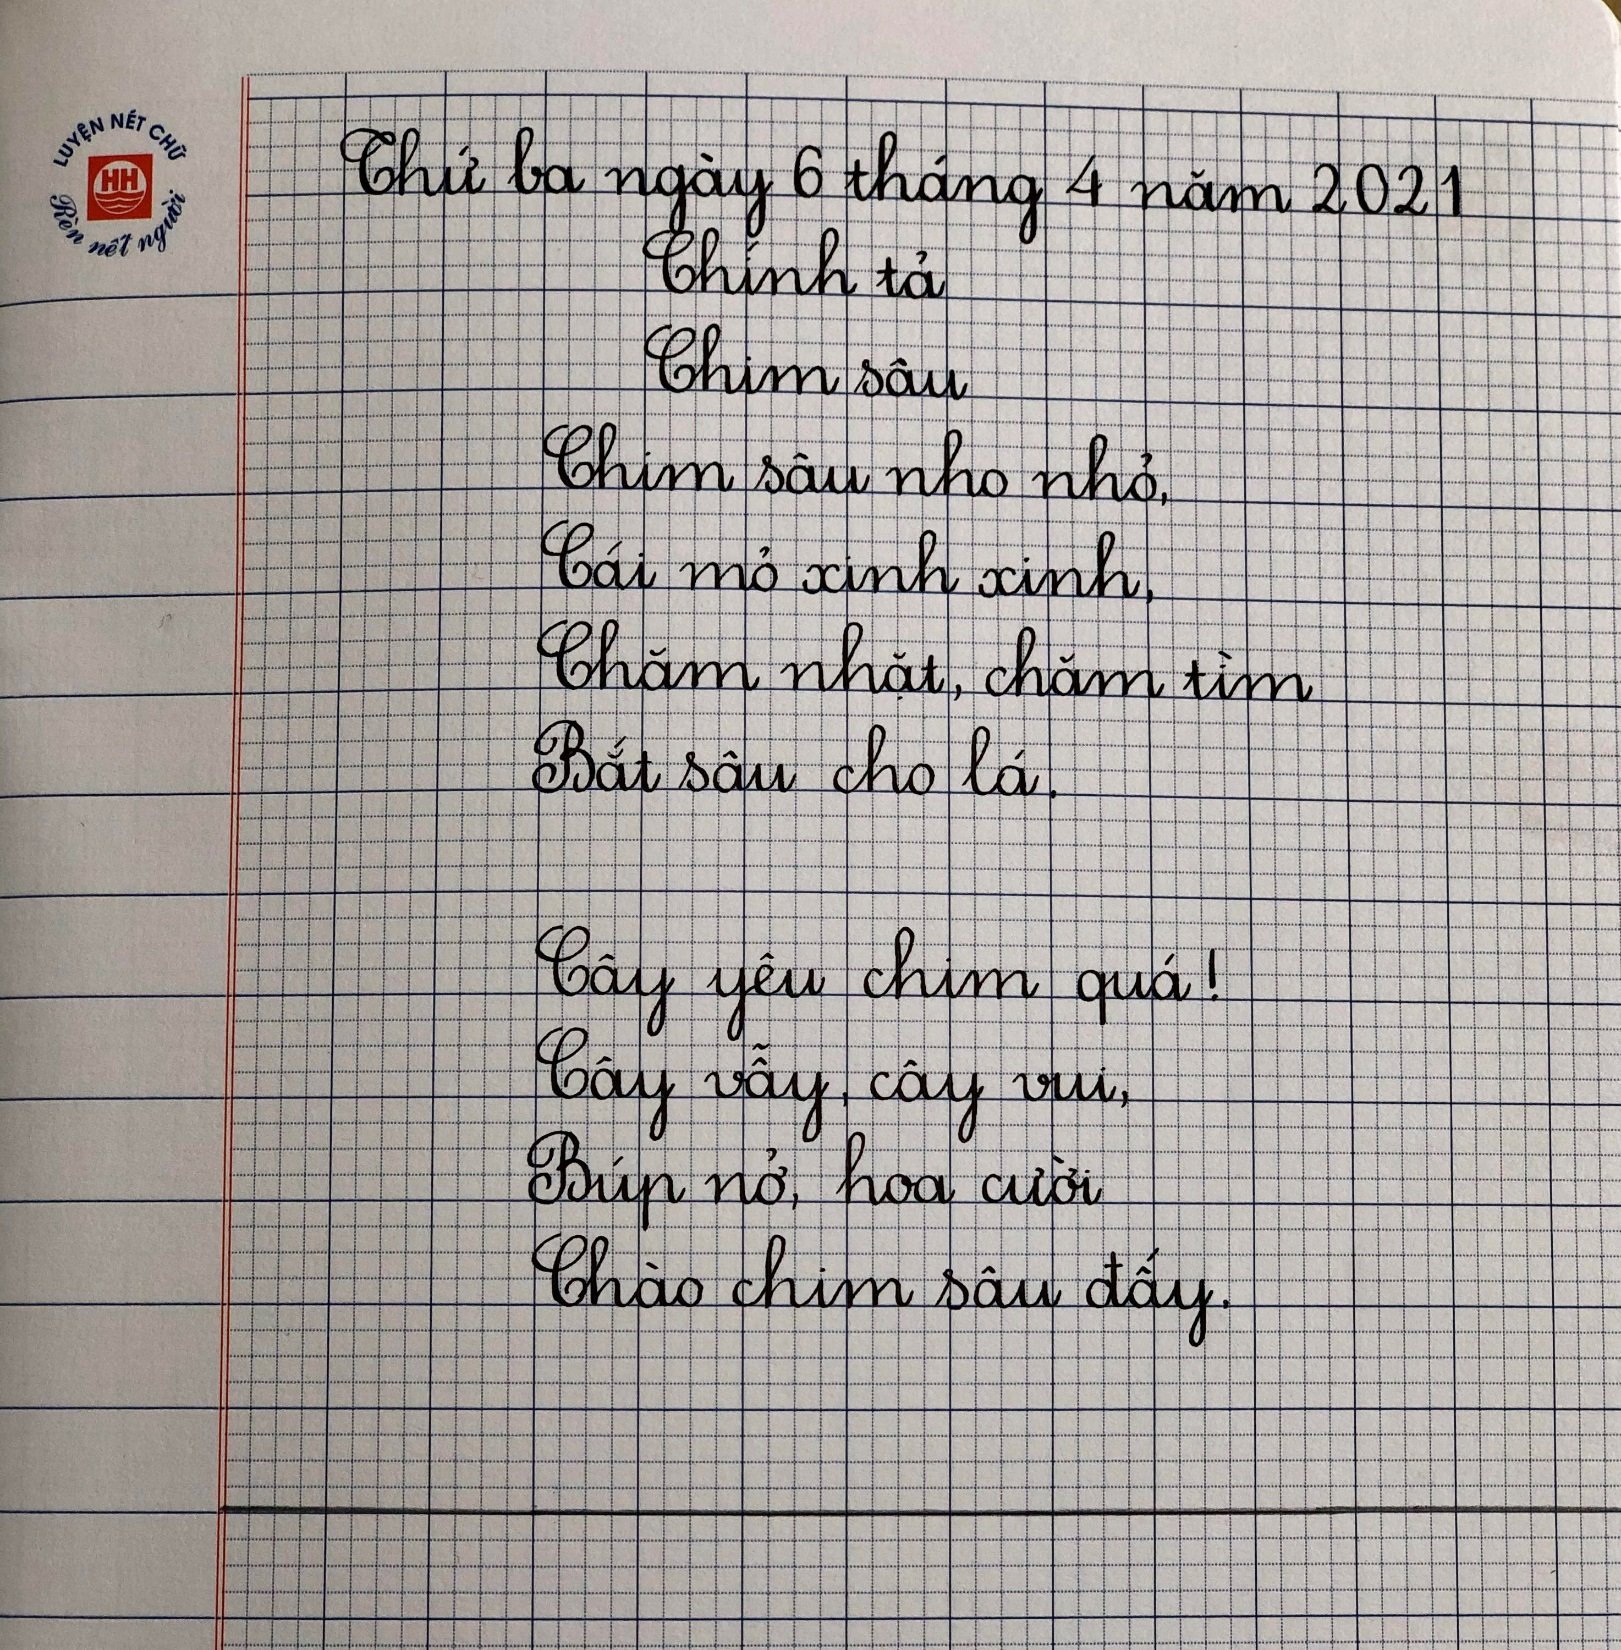 LUYỆN NÉT CHỮ
HH
Rèn nết người
Thứ ba ngày 6 tháng 4 năm 2021
Chính tả
Chim sâu
Chim sâu nho nhỏ,
Cái mỏ xinh xinh,
Chăm nhặt, chăm tìm
Bắt sâu cho lá.
Cây yêu chim quá!
Cây vẫy, cây vui,
Búp nở, hoa cười
Chào chim sâu đấy.